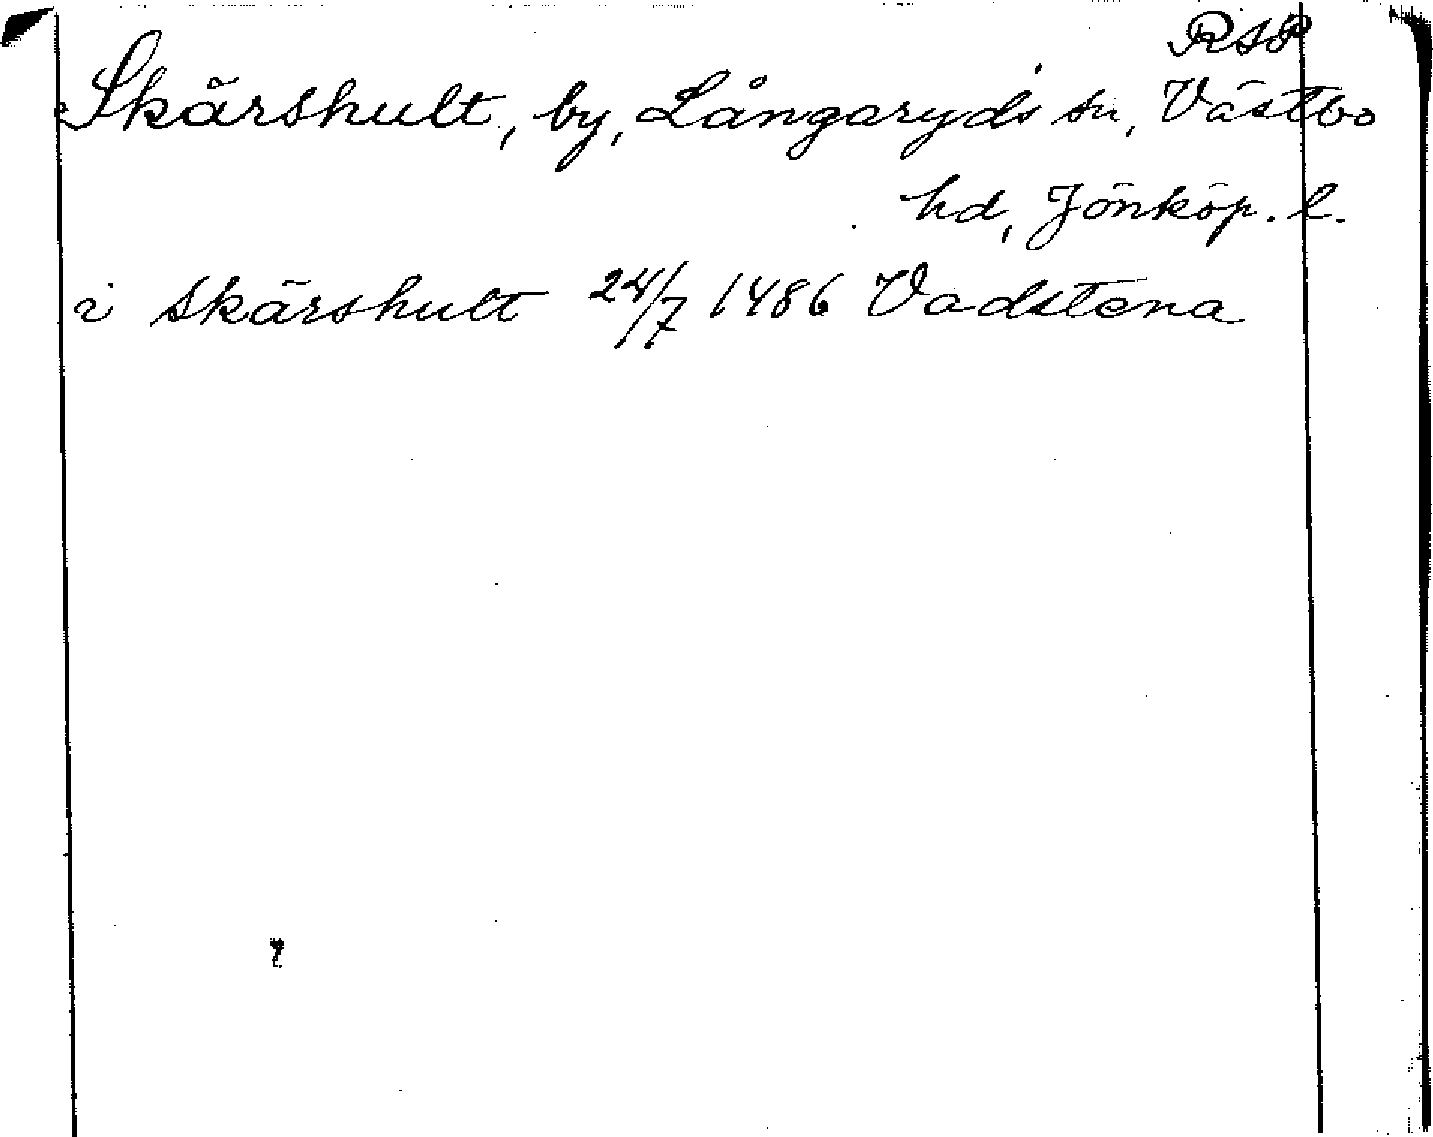 RAP
Skärshult, by, Långaryds sn, Västbo
hd, Jönköp. l.
i skärshult 24/7 1486 Vadstena